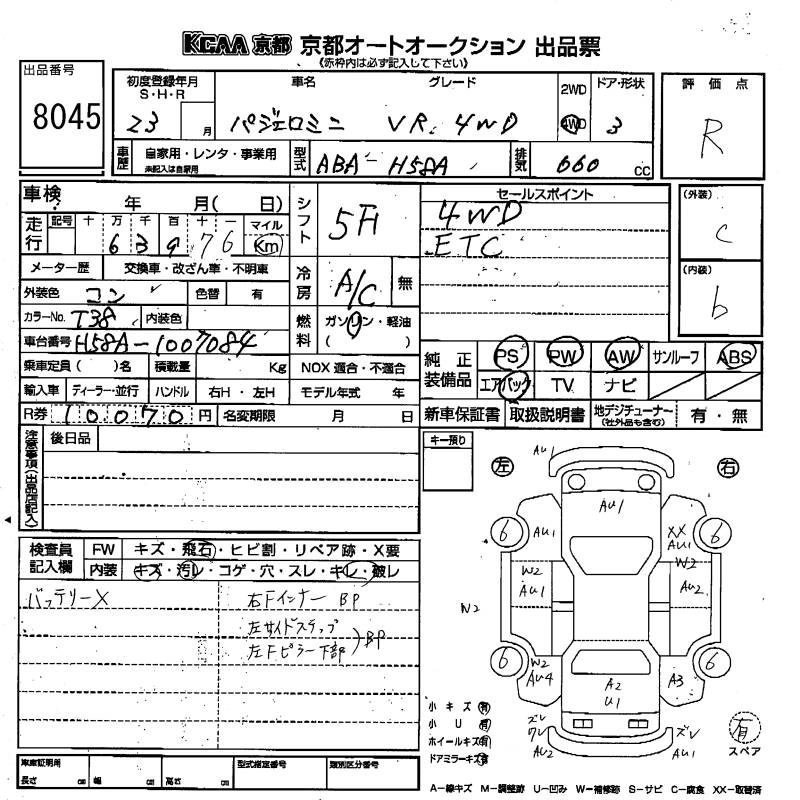 KCAA 京都 京都オートオークション 出品票
《赤枠内は必ず記入して下さい》
出品番号
8045
初度登録年月
S・H・R
23 月
車名
パジェロミニ
グレード
VR. 4WD
2WD
4WD
ドア・形状
3
評価点
R
車歴
自家用・レンタ・事業用
未記入は自家用
型式
ABA-H58A
排気
660 cc
車検 年 月( 日)
走行
記号 十 万 千 百 十 一 マイル
6 3 9 7 6 Km
メーター歴 交換車・改ざん車・不明車
外装色 コン 色替 有
カラーNo. T38 内装色
車台番号 H58A-1007084
乗車定員( )名 積載量 Kg
輸入車 ディーラー・並行 ハンドル 右H・左H
R券 10070 円 名変期限 月 日
シフト
5F
冷房
A/C 無
燃料
ガソリン・軽油
( )
NOX 適合・不適合
モデル年式 年
セールスポイント
4WD
ETC
(外装)
C
(内装)
b
純正装備品
PS PW AW サンルーフ ABS
エアバック TV ナビ
新車保証書 取扱説明書 地デジチューナー(社外品も含む) 有・無
注意事項(出品店記入)
後日品
キー預り
左
右
検査員記入欄
FW キズ・飛石・ヒビ割・リペア跡・X要
内装 キズ・汚レ・コゲ・穴・スレ・キレ・破レ
バッテリーX
右Fインナー BP
左サイドステップ
左Fピラー下部 )BP
AU1
AU1
6 AU1
XX AU1 6
W2 AU1
W2 AU2
W2
6 W2 AU4
A3 6
A2 U1
ズレ ワレ AU2
ズレ AU1
小キズ 有
小U 有
ホイールキズ 有
ドアミラーキズ 有
有
スペア
車庫証明用
長さ cm 幅 cm 高さ cm
型式指定番号
類別区分番号
A-線キズ M-調整跡 U-凹み W-補修跡 S-サビ C-腐食 XX-取替済